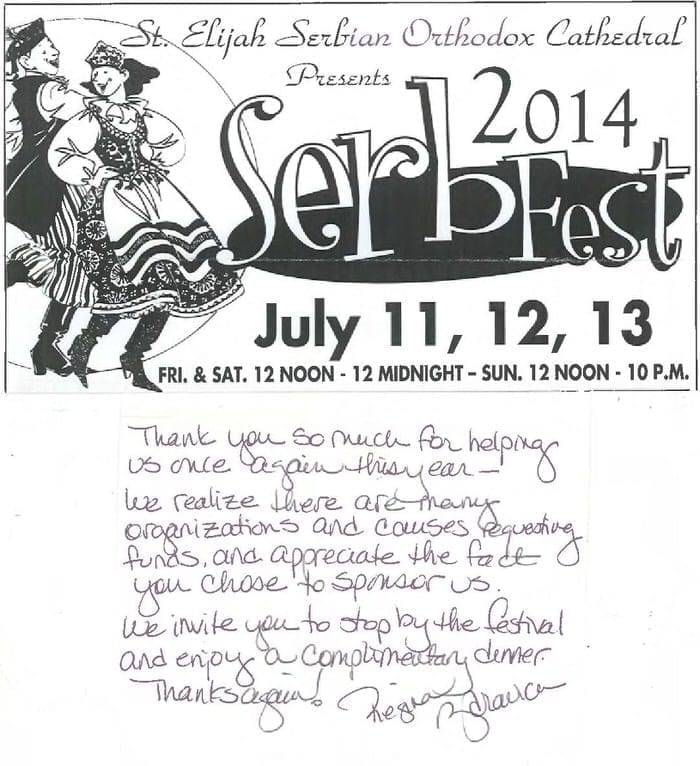 St. Elijah Serbian Orthodox Cathedral
Presents
2014
SerbFest
July 11, 12, 13
FRI. & SAT. 12 NOON - 12 MIDNIGHT – SUN. 12 NOON - 10 P.M.
Thank you so much for helping
us once again this year –
We realize there are many
organizations and causes requesting
funds, and appreciate the fact
you chose to sponsor us.
We invite you to stop by the festival
and enjoy a complimentary dinner.
Thanks again!